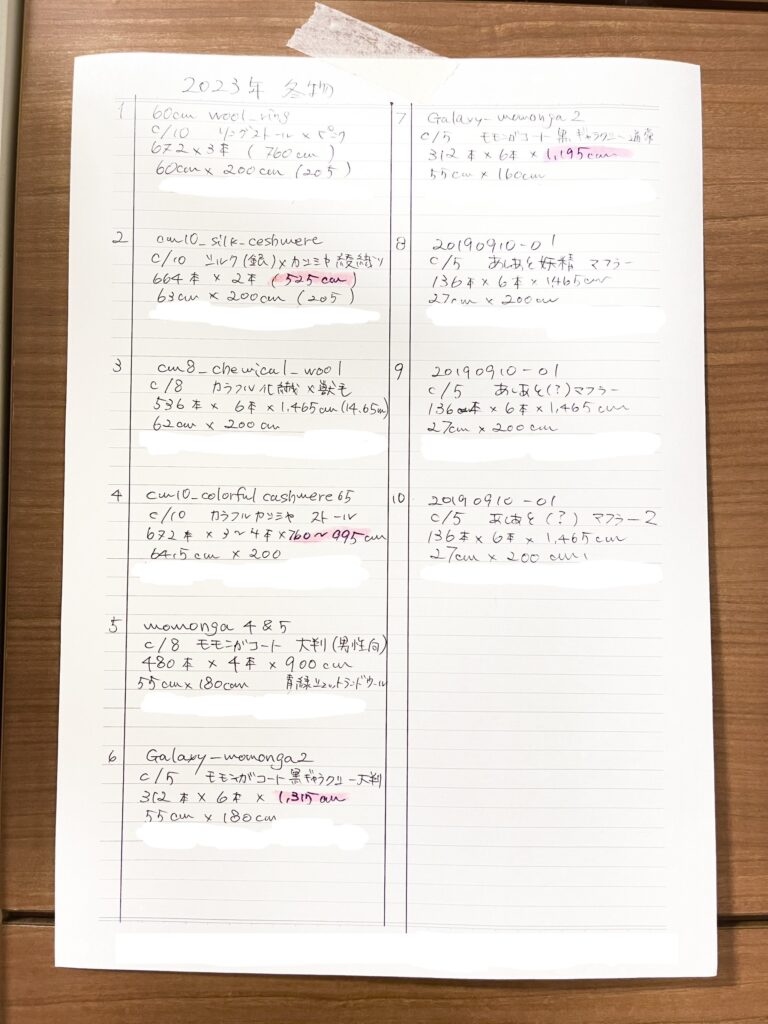 2023年 冬物
1
60cm wool_ring
C/10 リングストール × ピンク
672 × 3本 (760cm)
60cm × 200cm (205)
2
cm10_silk_ceshmere
C/10 シルク(銀)×カシミヤ 綾織り
664本 × 2本 (525cm)
63cm × 200cm (205)
3
cm8_chemical_wool
C/8 カラフル化繊×獣毛
536本 × 6本 × 1,465cm (14.65m)
62cm × 200cm
4
cm10_colorful cashmere 65
C/10 カラフルカシミヤ ストール
672本 × 3〜4本 × 760〜995cm
64,5cm × 200
5
momonga 4&5
C/8 モモンガコート 大判(男性向)
480本 × 4本 × 900cm
55cm × 180cm 青緑シェットランドウール
6
Galaxy-momonga2
C/5 モモンガコート黒ギャラクシー大判
312本 × 6本 × 1,315cm
55cm × 180cm
7
Galaxy-momonga2
C/5 モモンガコート 黒ギャラクシー通常
312本 × 6本 × 1,195cm
55cm × 160cm
8
20190910-01
C/5 あしあと妖精 マフラー
136本 × 6本 × 1465cm
27cm × 200cm
9
20190910-01
C/5 あしあと(?)マフラー
136本 × 6本 × 1,465cm
27cm × 200cm
10
20190910-01
C/5 あしあと(?)マフラー2
136本 × 6本 × 1,465cm
27cm × 200cm